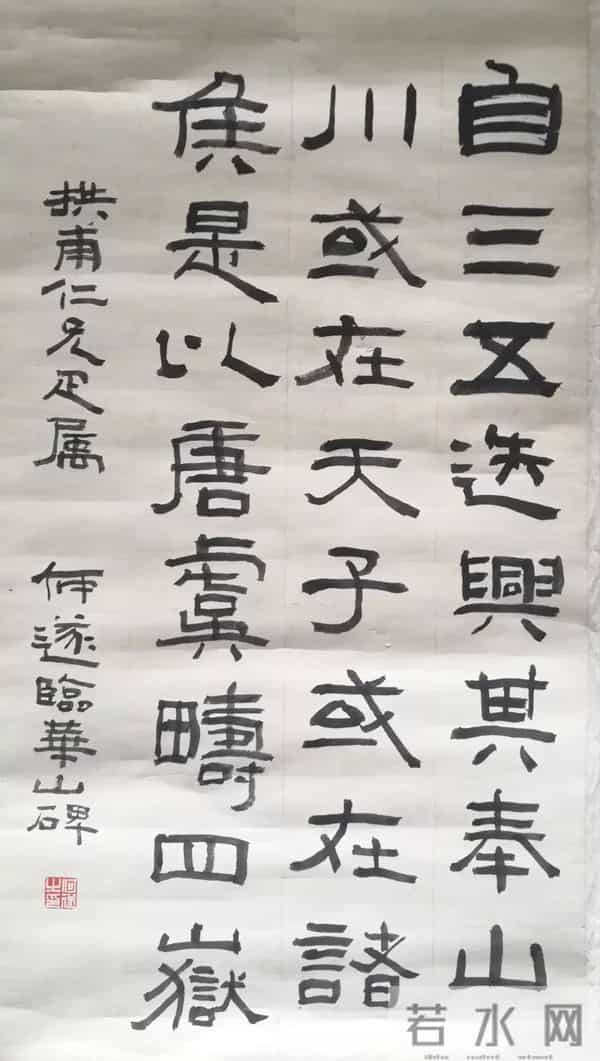 自三五迭興其奉山
川或在天子或在諸
侯是以唐虞疇四嶽
拱甫仁兄疋属 何遂臨華山碑
何遂之印
若水网